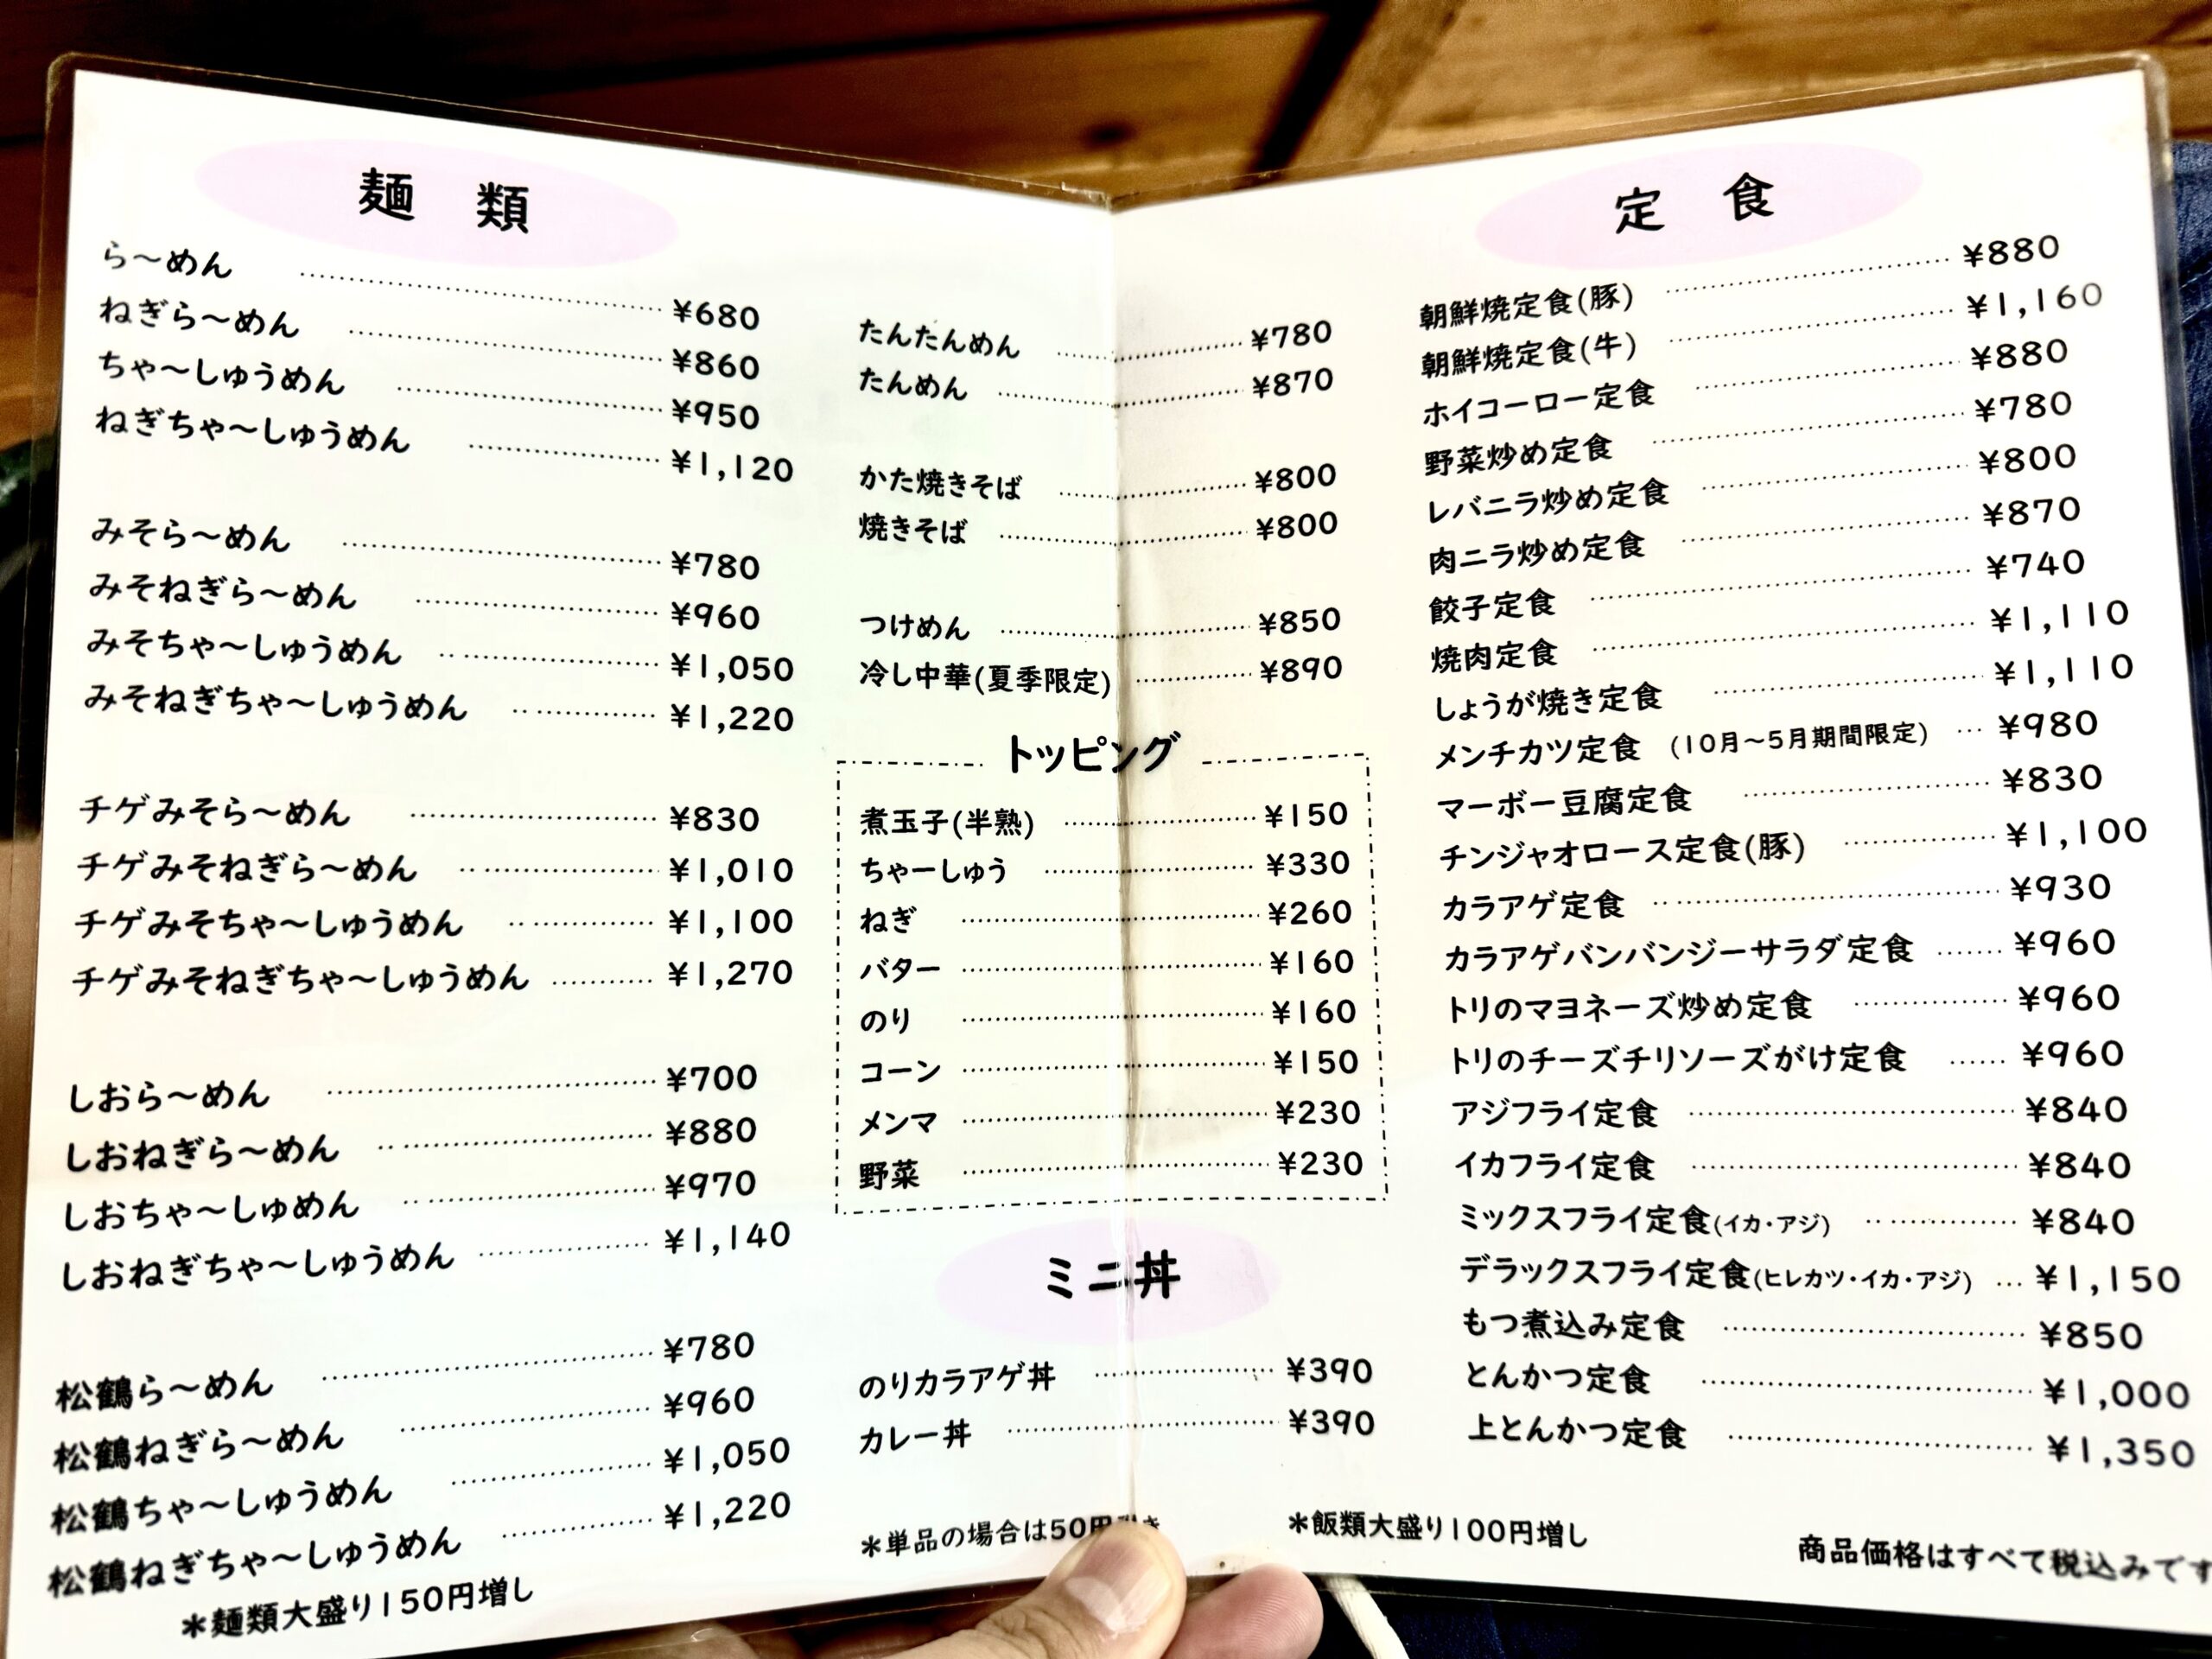 麺 類
ら～めん ¥680
ねぎら～めん ¥860
ちゃ～しゅうめん ¥950
ねぎちゃ～しゅうめん ¥1,120
みそら～めん ¥780
みそねぎら～めん ¥960
みそちゃ～しゅうめん ¥1,050
みそねぎちゃ～しゅうめん ¥1,220
チゲみそら～めん ¥830
チゲみそねぎら～めん ¥1,010
チゲみそちゃ～しゅうめん ¥1,100
チゲみそねぎちゃ～しゅうめん ¥1,270
しおら～めん ¥700
しおねぎら～めん ¥880
しおちゃ～しゅめん ¥970
しおねぎちゃ～しゅうめん ¥1,140
松鶴ら～めん ¥780
松鶴ねぎら～めん ¥960
松鶴ちゃ～しゅうめん ¥1,050
松鶴ねぎちゃ～しゅうめん ¥1,220
＊麺類大盛り150円増し
たんたんめん ¥780
たんめん ¥870
かた焼きそば ¥800
焼きそば ¥800
つけめん ¥850
冷し中華(夏季限定) ¥890
トッピング
煮玉子(半熟) ¥150
ちゃーしゅう ¥330
ねぎ ¥260
バター ¥160
のり ¥160
コーン ¥150
メンマ ¥230
野菜 ¥230
ミニ丼
のりカラアゲ丼 ¥390
カレー丼 ¥390
＊単品の場合は50円
＊飯類大盛り100円増し
定 食
朝鮮焼定食(豚) ¥880
朝鮮焼定食(牛) ¥1,160
ホイコーロー定食 ¥880
野菜炒め定食 ¥780
レバニラ炒め定食 ¥800
肉ニラ炒め定食 ¥870
餃子定食 ¥740
焼肉定食 ¥1,110
しょうが焼き定食 ¥1,110
メンチカツ定食 (10月～5月期間限定) ¥980
マーボー豆腐定食 ¥830
チンジャオロース定食(豚) ¥1,100
カラアゲ定食 ¥930
カラアゲバンバンジーサラダ定食 ¥960
トリのマヨネーズ炒め定食 ¥960
トリのチーズチリソーズがけ定食 ¥960
アジフライ定食 ¥840
イカフライ定食 ¥840
ミックスフライ定食(イカ・アジ) ¥840
デラックスフライ定食(ヒレカツ・イカ・アジ) ¥1,150
もつ煮込み定食 ¥850
とんかつ定食 ¥1,000
上とんかつ定食 ¥1,350
商品価格はすべて税込みです